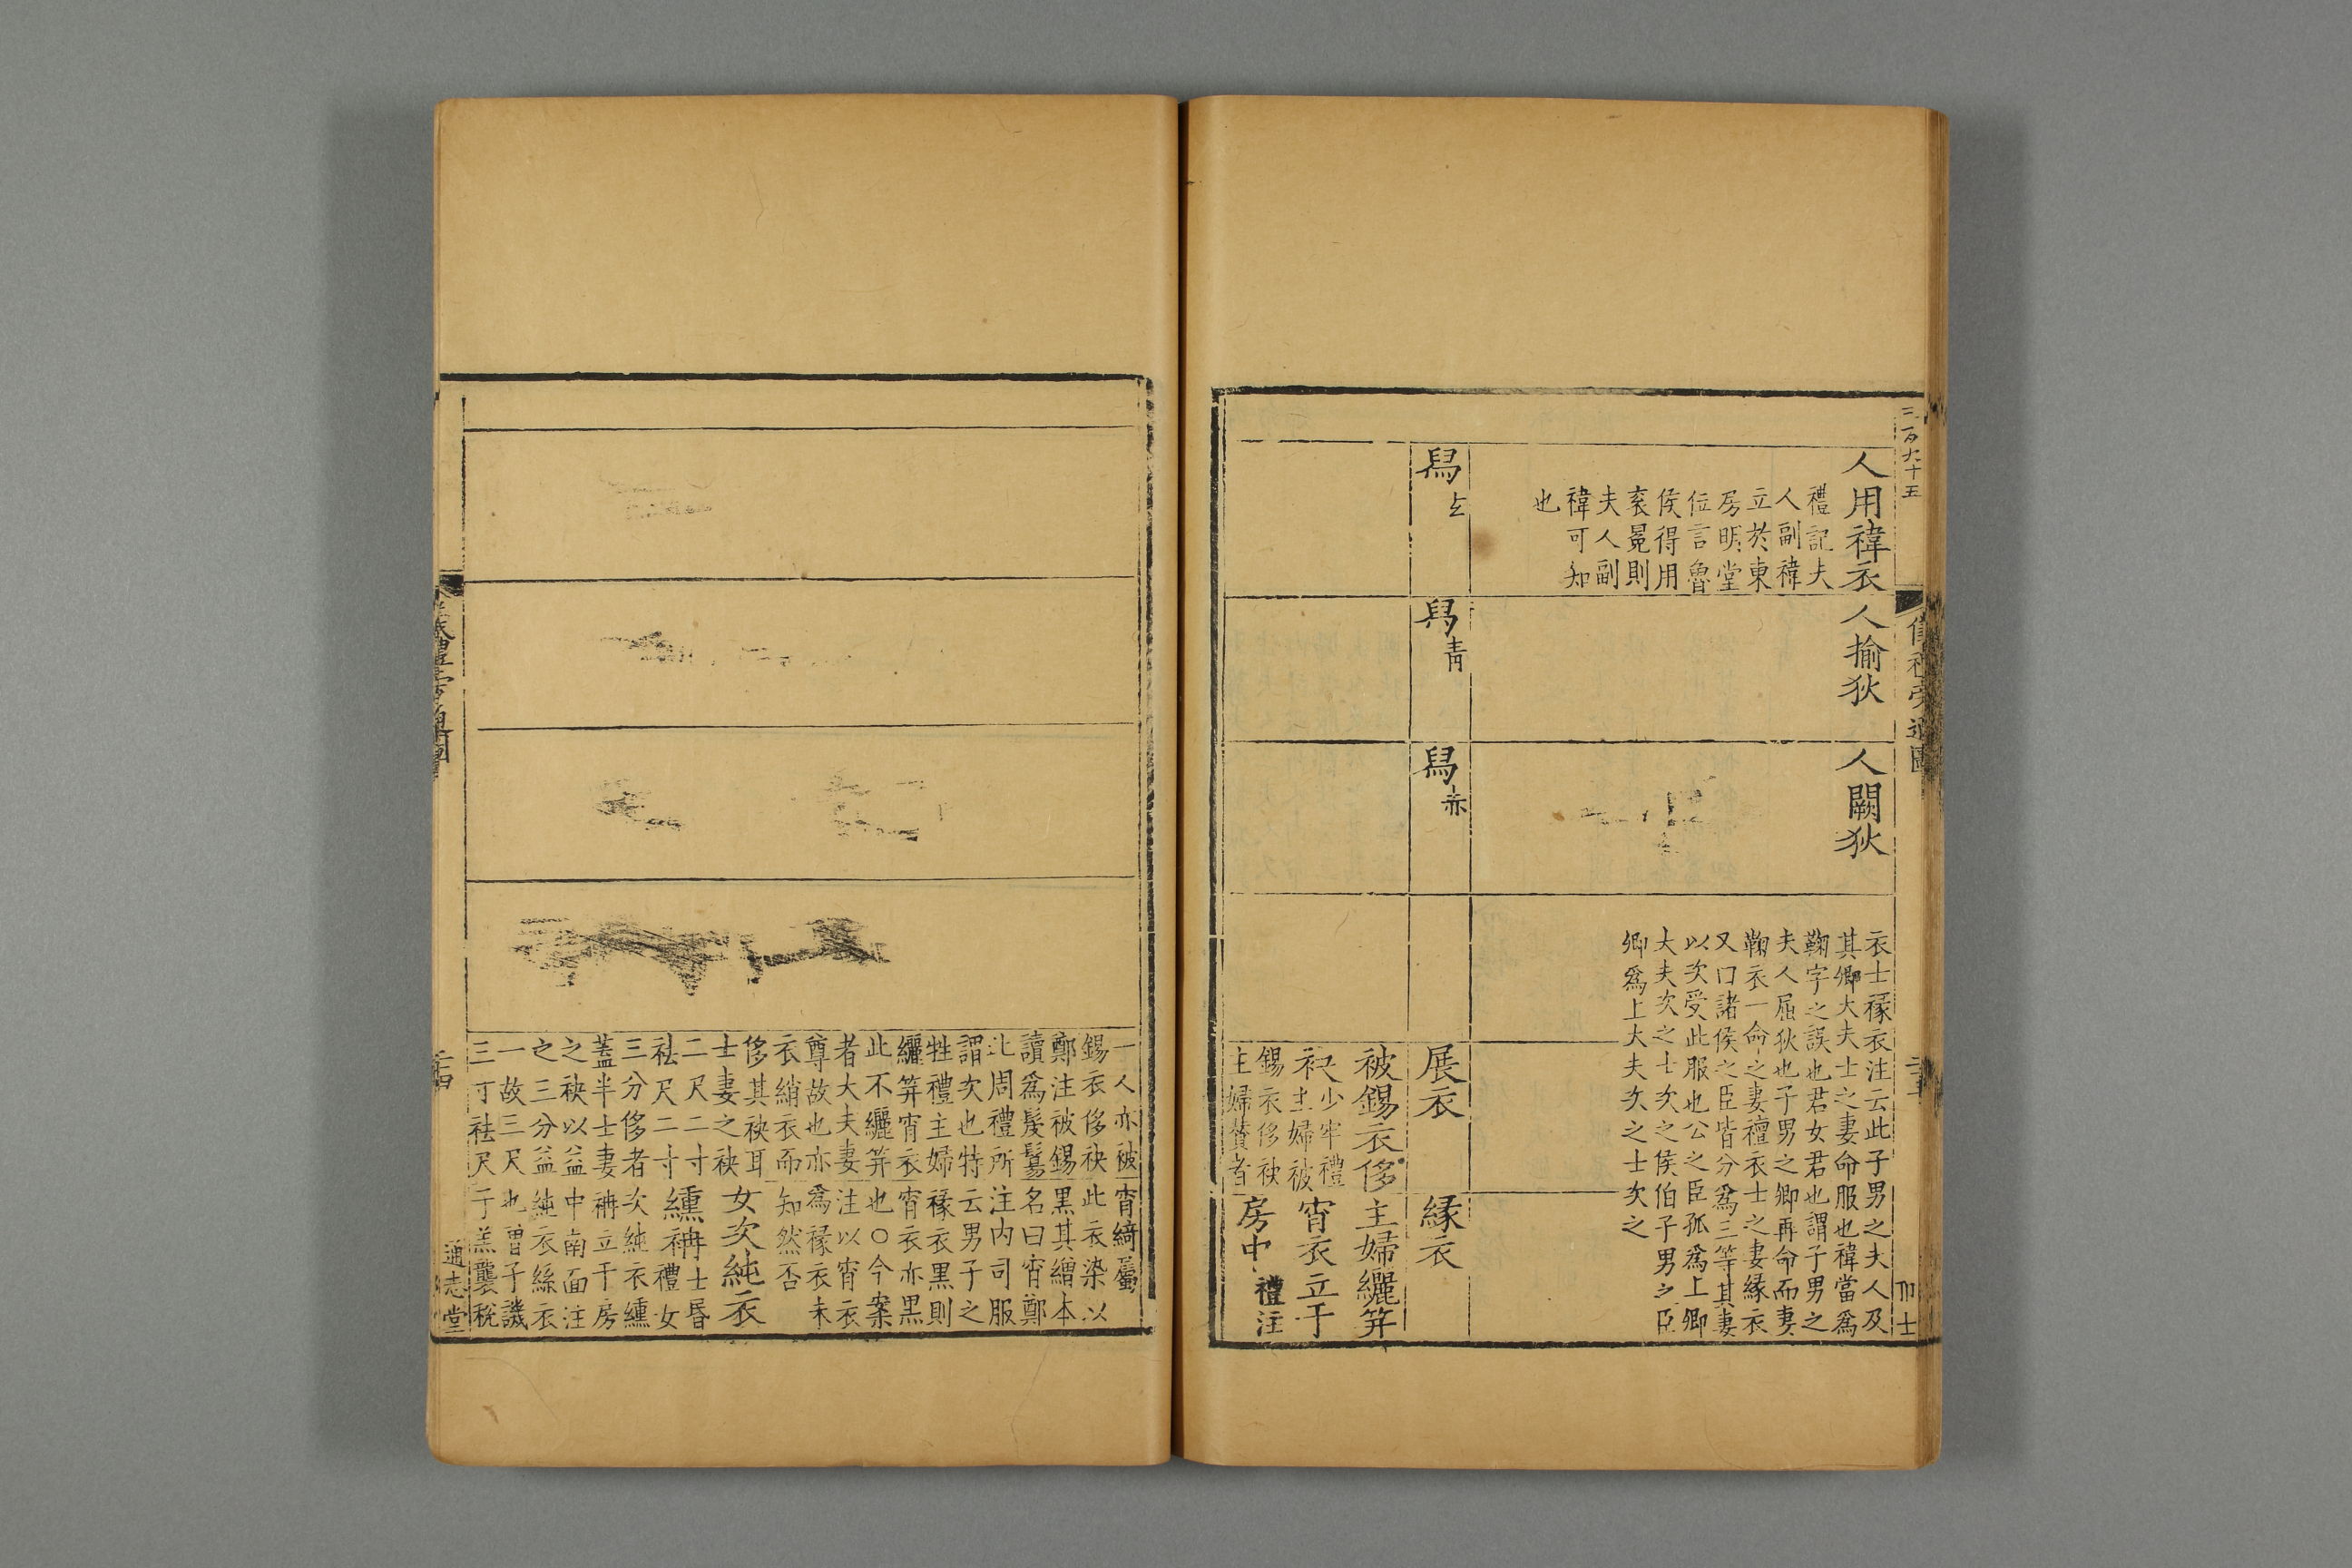 三百九十五
儀禮旁通圖
人用褘衣
禮記夫
人副褘
立於東
房明堂
位言魯
侯得用
衮冕則
夫人副
褘可知
也
人揄狄
人闕狄
衣士褖衣注云此子男之夫人及
其卿大夫士之妻命服也褘當爲
鞠字之誤也君女君也謂子男之
夫人屈狄也子男之卿再命而妻
鞠衣一命之妻襢衣士之妻緣衣
又曰諸侯之臣皆分爲三等其妻
以次受此服也公之臣孤爲上卿
大夫次之士次之侯伯子男之臣
卿爲上大夫次之士次之
舄
舄青
舄赤
展衣
緣衣
被錫衣侈
袂少牢禮
主婦被
錫衣侈袂
主婦贊者
主婦纚笄
宵衣立于
房中禮注
一人亦被
錫衣侈袂
鄭注被錫
讀爲髲鬄
此周禮所
謂次也特
牲禮主婦
纚笄宵衣
此不纚笄
者大夫妻
尊故也亦
衣綃衣而
侈其袂耳
士妻之袂
二尺二寸
袪尺二寸
三分侈者
蓋半士妻
之袂以益
之三分益
一故三尺
三寸袪尺
宵綺屬
此衣染以
黑其繒本
名曰宵鄭
注内司服
云男子之
褖衣黑則
宵衣亦黑
也○今案
注以宵衣
爲褖衣未
知然否
女次純衣
纁袡士昬
禮女
次純衣纁
袡立于房
中南面注
純衣絲衣
也曾子譏
子羔襲稅
通志堂